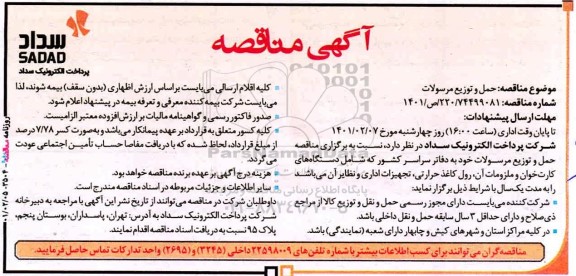 آگهی مناقصه
سداد
SADAD
پرداخت الکترونیک سداد
موضوع مناقصه: حمل و توزیع مرسولات
شماره مناقصه: ۲۲۰/۷۴۴۹۹۰۸۱/ص/۱۴۰۱
مهلت ارسال پیشنهادات:
تا پایان وقت اداری (ساعت ۱۶:۰۰) روز چهارشنبه مورخ ۱۴۰۱/۰۲/۰۷
شرکت پرداخت الکترونیک سداد در نظر دارد، نسبت به برگزاری مناقصه
حمل و توزیع مرسولات خود به دفاتر سراسر کشور که شامل دستگاه‌های
کارت‌خوان و ملزومات آن، رول کاغذ حرارتی، تجهیزات اداری و نظایر آن می‌باشد
را به مدت یک‌سال با شرایط ذیل برگزار نماید:
شرکت کننده می‌بایست دارای مجوز رسمی حمل و نقل و توزیع کالا از مراجع
ذی‌صلاح و دارای حداقل ۳ سال سابقه حمل و نقل داخلی باشد.
در کلیه مراکز استان و شهرهای کیش و چابهار دارای شعبه (نمایندگی) باشد.
کلیه اقلام ارسالی می‌بایست براساس ارزش اظهاری (بدون سقف) بیمه شوند، لذا
می‌بایست شرکت بیمه کننده معرفی و تعرفه بیمه در پیشنهاد اعلام شود.
صدور فاکتور رسمی و گواهینامه مالیات بر ارزش افزوده معتبر الزامیست.
کلیه کسور متعلق به قرارداد بر عهده پیمانکار می‌باشد و به‌صورت کسر ۷/۷۸ درصد
از مبلغ قرارداد، لحاظ شده که با دریافت مفاصا حساب تأمین اجتماعی عودت
می‌گردد.
هزینه درج آگهی بر عهده برنده مناقصه خواهد بود.
سایر اطلاعات و جزئیات مربوطه در اسناد مناقصه مندرج است.
داوطلبان شرکت در مناقصه می‌توانند از تاریخ نشر این آگهی با مراجعه به دبیرخانه
شرکت پرداخت الکترونیک سداد به آدرس: تهران، پاسداران، بوستان پنجم،
پلاک ۹۵ نسبت به دریافت اسناد مناقصه اقدام نمایند.
مناقصه‌گران می‌توانند برای کسب اطلاعات بیشتر با شماره تلفن‌های ۲۲۵۹۸۰۰۹ داخلی (۳۲۴۵) و (۲۶۹۵) واحد تدارکات تماس حاصل فرمایید.